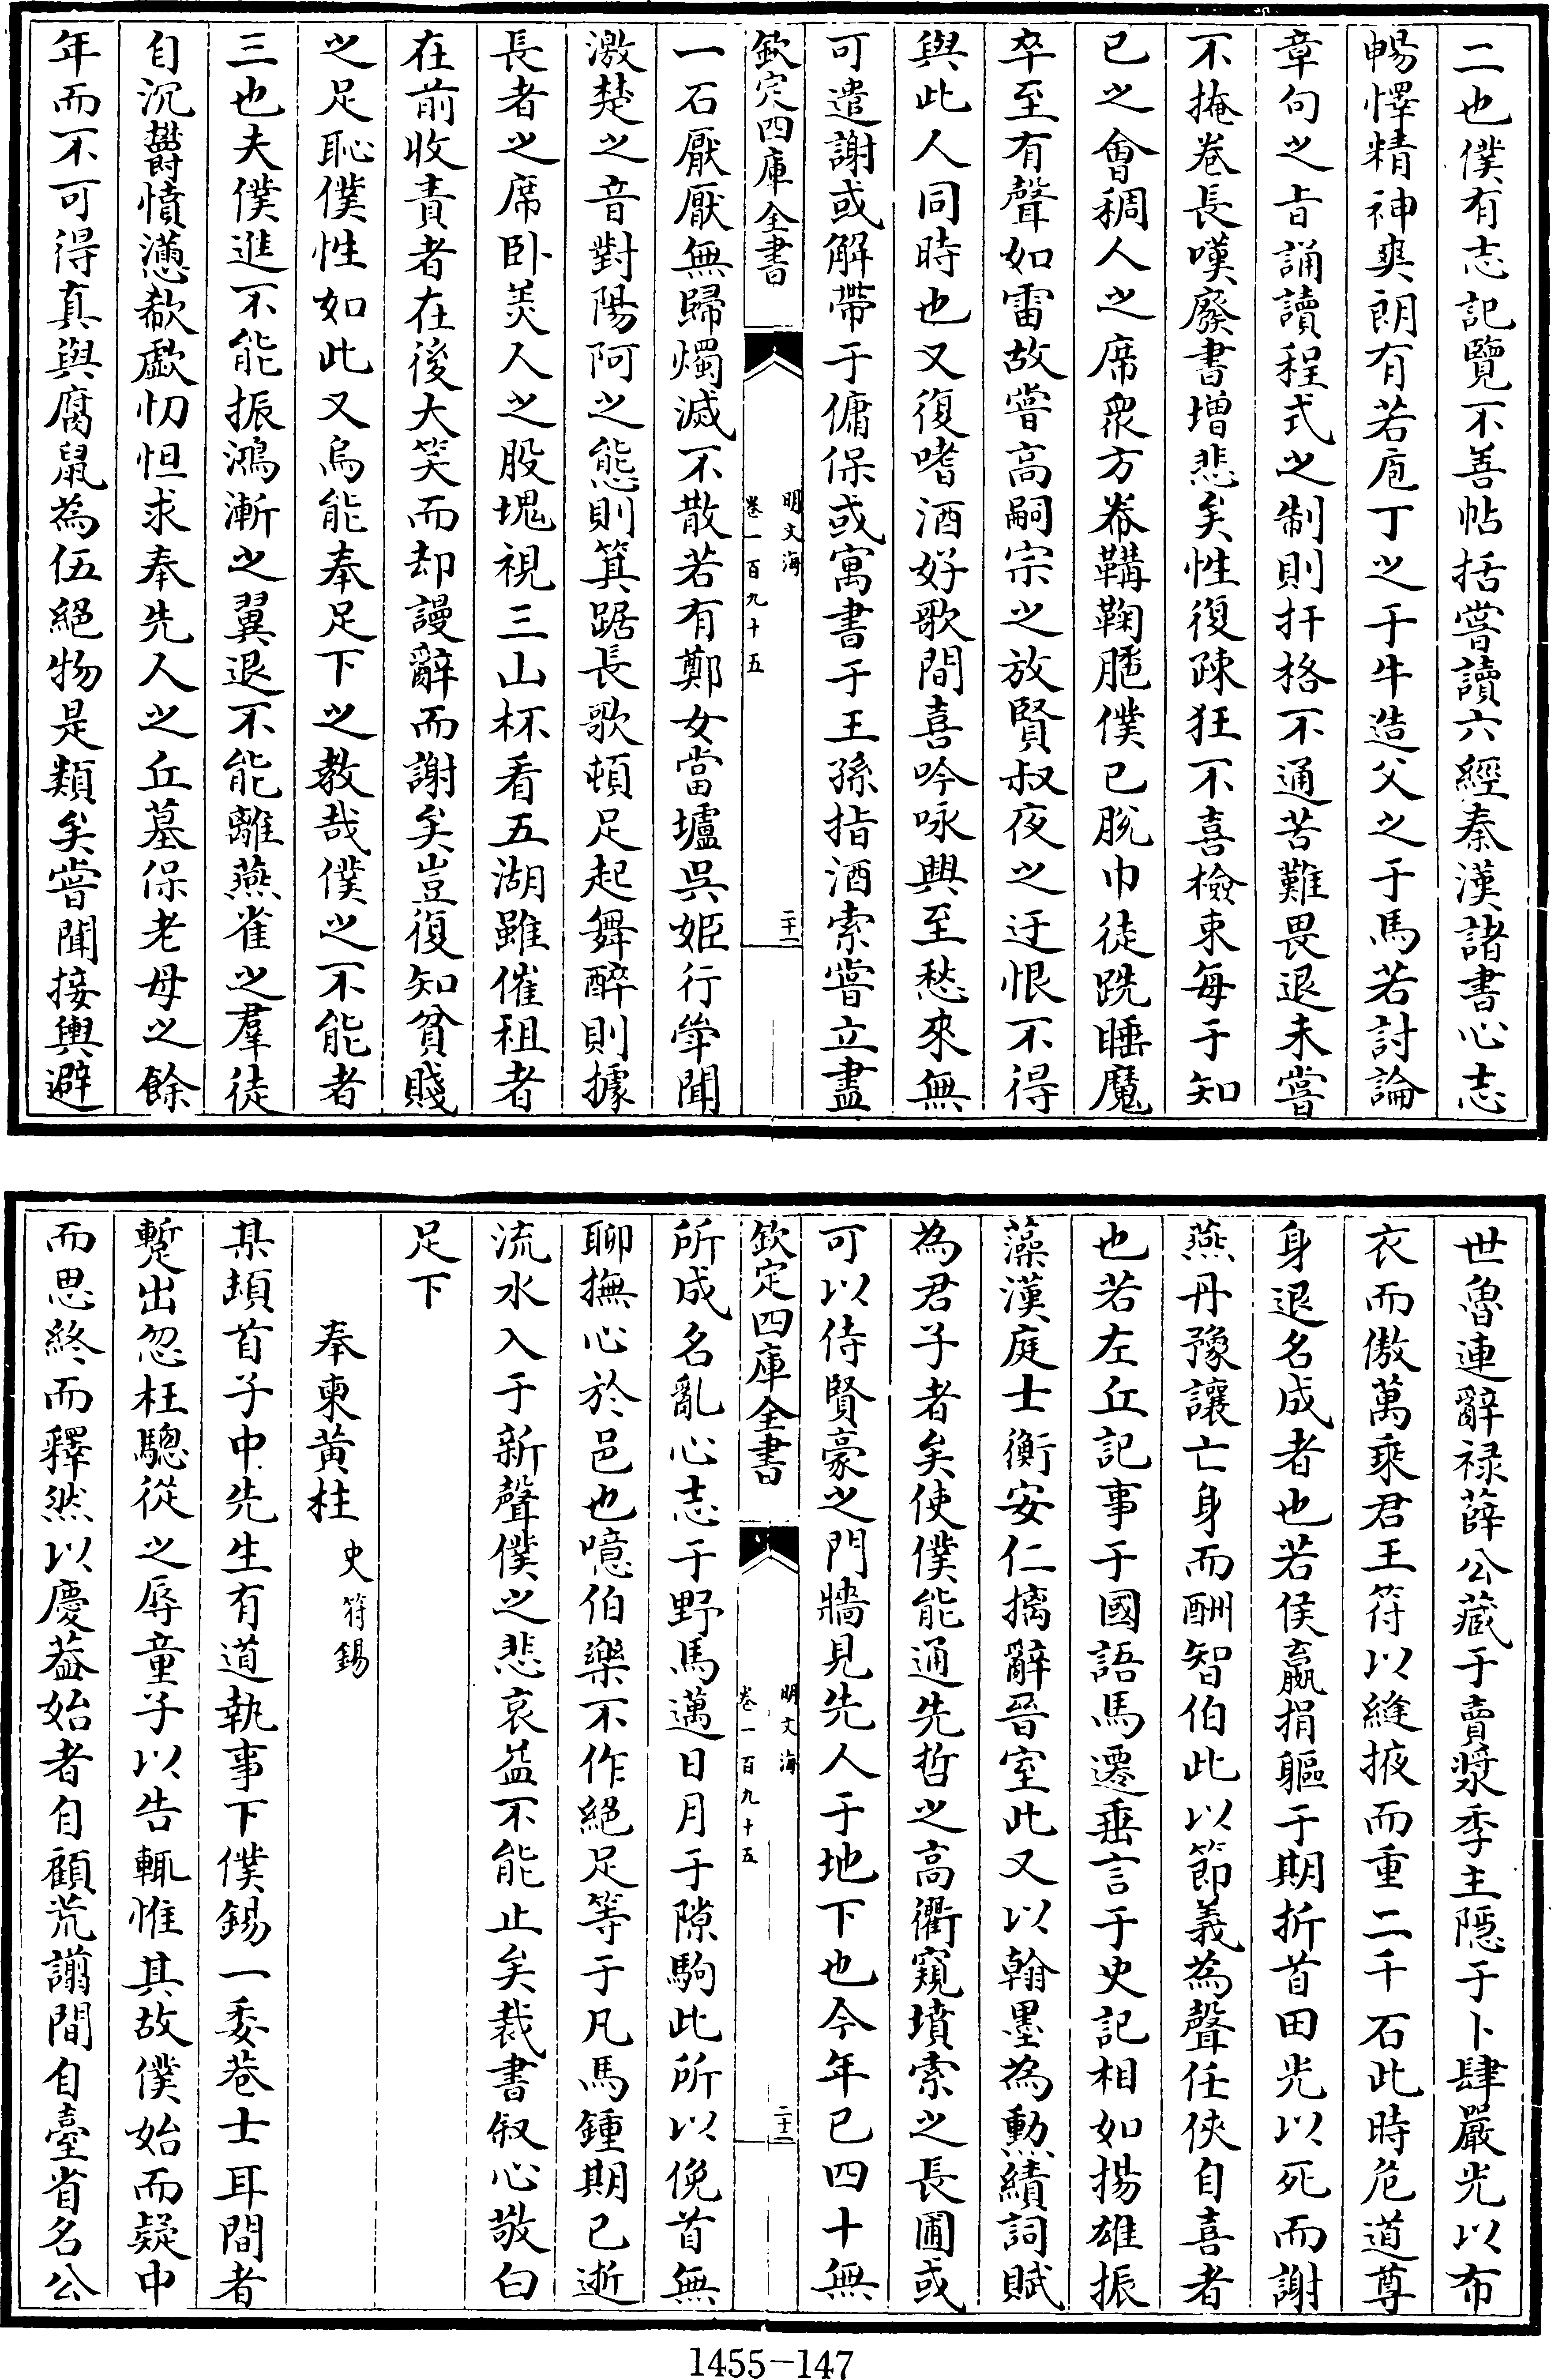 二也僕有志記覽不善帖括嘗讀六經秦漢諸書心志
暢懌精神爽朗有若庖丁之于牛造父之于馬若討論
章句之旨誦讀程式之制則扞格不通苦難畏退未嘗
不掩卷長嘆廢書增悲矣性復疎狂不喜檢束每于知
已之會稠人之席衆方桊鞲鞠䏝僕已脫巾徒跣睡魔
卒至有聲如雷故嘗高嗣宗之放賢叔夜之迂恨不得
與此人同時也又復嗜酒好歌間喜吟咏興至愁來無
可遣謝或解帶于傭保或寓書于王孫指酒索嘗立盡
欽定四庫全書
明文海
卷一百九十五
二十一
一石厭厭無歸燭滅不散若有鄭女當壚吳姬行斝聞
激楚之音對陽阿之態則箕踞長歌頓足起舞醉則據
長者之席卧美人之股塊視三山杯看五湖雖催租者
在前收責者在後大笑而却謾辭而謝矣豈復知貧賤
之足恥僕性如此又烏能奉足下之教哉僕之不能者
三也夫僕進不能振鴻漸之翼退不能離燕雀之羣徒
自沉欝憤懣欷歔忉怛求奉先人之丘墓保老母之餘
年而不可得真與腐鼠為伍絕物是類矣嘗聞接輿避
世魯連辭祿薛公藏于賣漿季主隱于卜肆嚴光以布
衣而傲萬乘君王符以縫掖而重二千石此時危道尊
身退名成者也若侯嬴捐軀于期折首田光以死而謝
燕丹豫讓亡身而酬智伯此以節義為聲任俠自喜者
也若左丘記事于國語馬遷垂言于史記相如揚雄振
藻漢庭士衡安仁摛辭晉室此又以翰墨為勲績詞賦
為君子者矣使僕能通先哲之高衢窺墳索之長圃或
可以侍賢豪之門牆見先人于地下也今年已四十無
欽定四庫全書
明文海
卷一百九十五
二十一
所成名亂心志于野馬邁日月于隙駒此所以俛首無
聊撫心於邑也噫伯樂不作絕足等于凡馬鍾期已逝
流水入于新聲僕之悲哀益不能止矣裁書叙心敬白
足下
奉柬黃柱史 符錫
某頓首子中先生有道執事下僕錫一委巷士耳間者
蹔出忽枉驄從之辱童子以告輒惟其故僕始而疑中
而思終而釋然以慶葢始者自顧荒謭間自臺省名公
1455-147